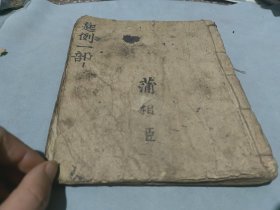 起例一部
蒲相臣